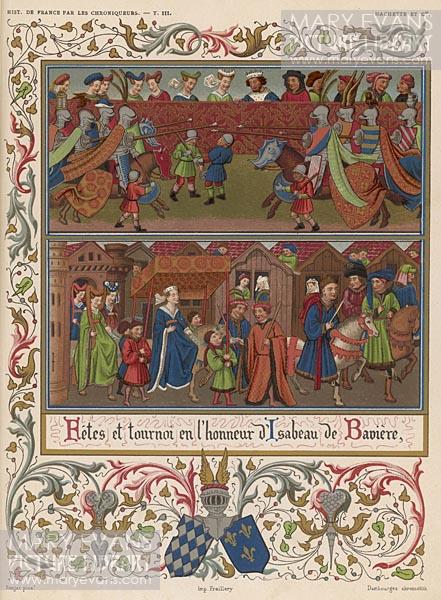 HIST. DE FRANCE PAR LES CHRONIQUEURS. — T. III.
HACHETTE ET Cie
MARY EVANS
PICTURE LIBRARY
www.maryevans.com
Fêtes et tournoi en l'honneur d'Isabeau de Bavière,
MARY EVANS
PICTURE LIBRARY
www.maryevans.com
imp. Fraillery
Dambourgez chromolith.